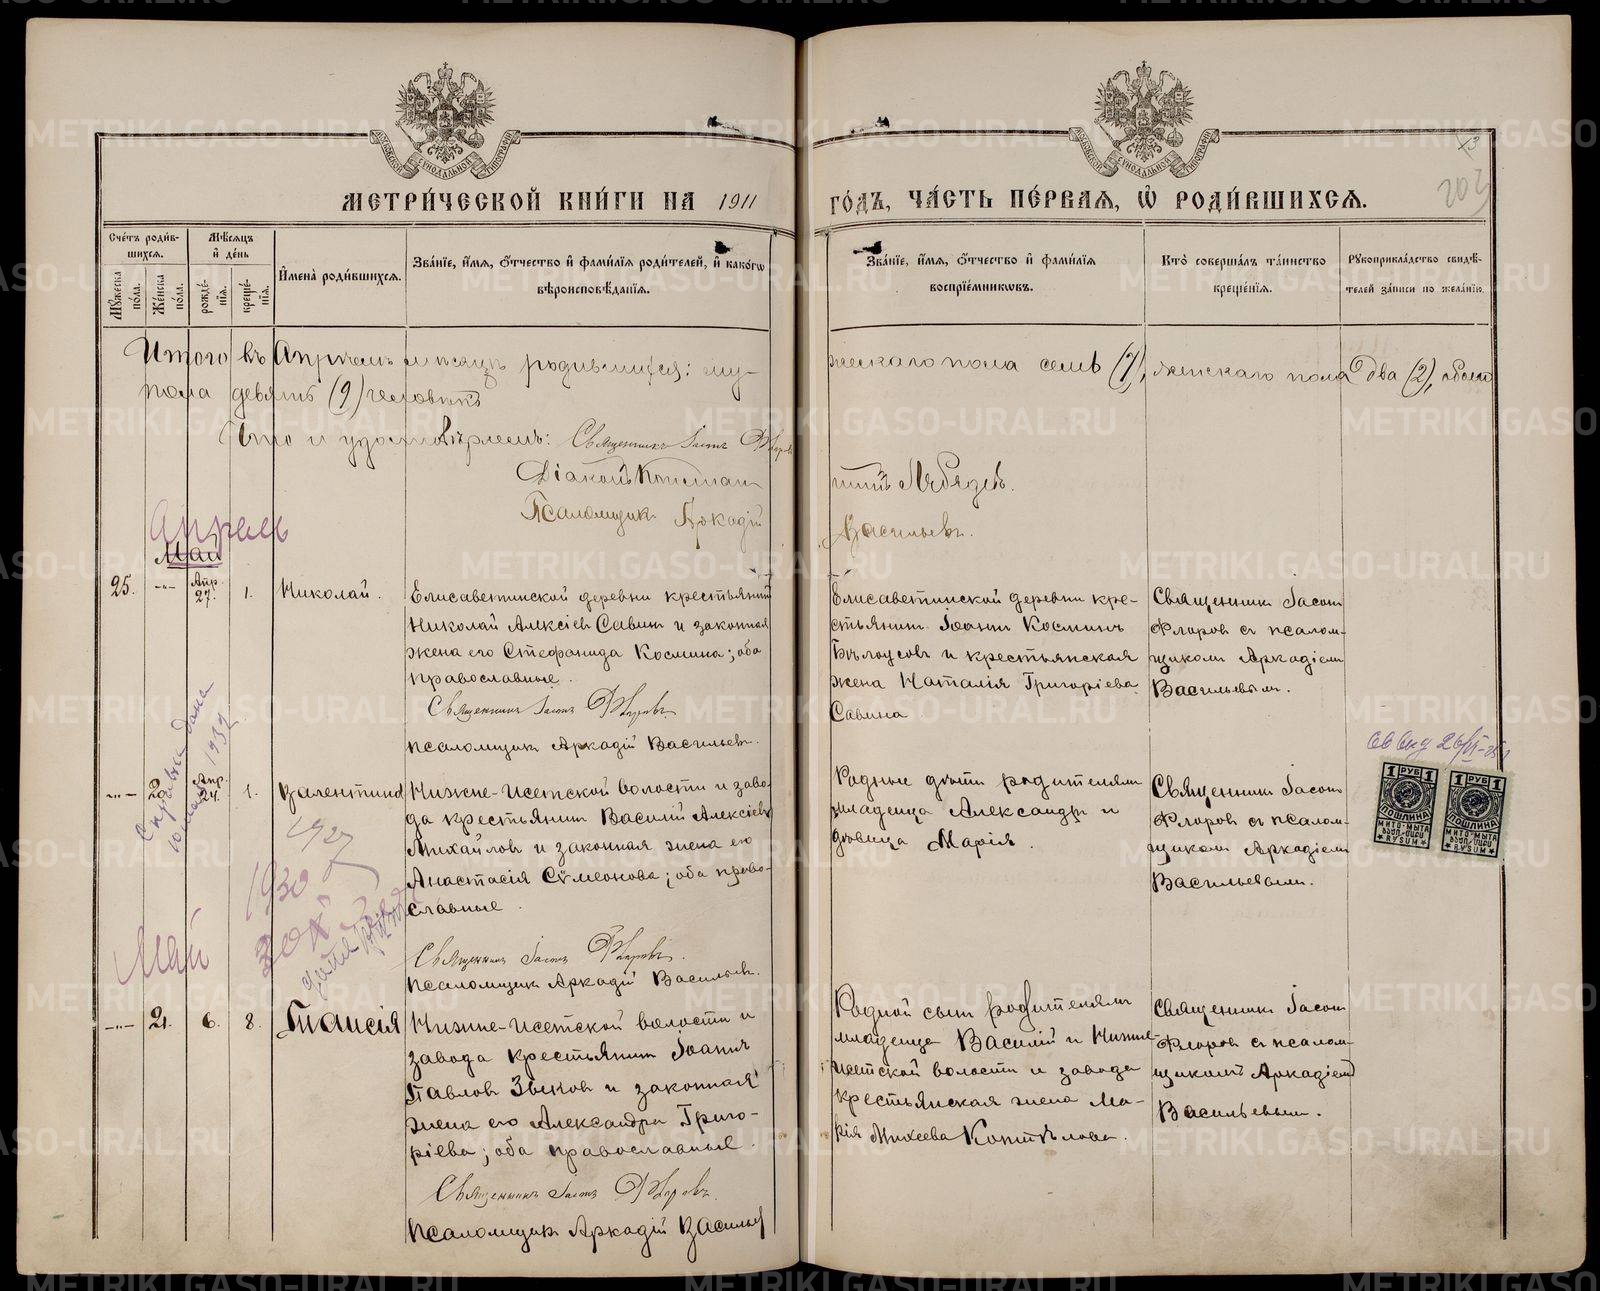 МЕТРИ́ЧЕСКОЙ КНИ́ГИ НА 1911
ГО́ДЪ, ЧА́СТЬ ПЕ́РВАѦ, Ѽ РОДИ́ВШИХСѦ.
13
203
Сче́тъ роди́в-
шихсѧ.
Мꙋ́жеска по́ла.
Же́нска по́ла.
Мѣ́сѧцъ
и҆ де́нь
рожде́-
нїѧ.
креще́-
нїѧ.
И҆мена̀ роди́вшихсѧ.
Зва́нїе, и҆́мѧ, ѻ҆́тчество и҆ фами́лїѧ роди́телей, и҆ како́гѡ
вѣроисповѣ́данїѧ.
Зва́нїе, и҆́мѧ, ѻ҆́тчество и҆ фами́лїѧ
воспрїе́мникѡвъ.
Кто̀ соверша́лъ та́инство
креще́нїѧ.
Рꙋкоприкла́дство свидѣ́-
телей за́писи по жела́нїю.
Итого въ Апрѣлѣ мѣсяцѣ родившихся: му-
жескаго пола семь (7), женскаго пола два (2), обоего
пола девять (9) человѣкъ
Что и удостовѣряемъ: Священникъ Іасонъ Флоровъ
Діаконъ Констан-
тинъ Лебедевъ.
Псаломщикъ Аркадій
Васильевъ.
Апрель
Май
25.
-"-
Апр.
27.
1.
Николай.
Елисаветинской деревни крестьянинъ
Николай Алексіевъ Савинъ и законная
жена его Стефанида Космина; оба
православные.
Священникъ Іасонъ Флоровъ
Псаломщикъ Аркадій Васильевъ.
Елисаветинской деревни кре-
стьянинъ Іоаннъ Косминъ
Бѣлоусовъ и крестьянская
жена Наталія Григоріева
Савина
Священникъ Іасонъ
Флоровъ съ псалом-
щикомъ Аркадіемъ
Васильевымъ.
-"-
20
Апр.
24.
1.
Валентина
Нижне-Исетской волости и заво-
да крестьянинъ Василій Алексіевъ
Михайловъ и законная жена его
Анастасія Сѵмеонова; оба право-
славные.
Священникъ Іасонъ Флоровъ.
Псаломщикъ Аркадій Васильевъ.
Родные дѣти родителямъ
младенца Александръ и
дѣвица Марія.
Священникъ Іасонъ
Флоровъ съ псалом-
щикомъ Аркадіемъ
Васильевымъ.
1932
1927
1930
Май
1 РУБ 1
ПОШЛИНА
МИТО-МЫТА
RÝSUM
1 РУБ 1
ПОШЛИНА
МИТО-МЫТА
RÝSUM
-"-
21.
6.
8.
Таисія
Нижне-Исетской волости и
завода крестьянинъ Іоаннъ
Павловъ Зыковъ и законная
жена его Александра Григо-
ріева; оба православные.
Священникъ Іасонъ Флоровъ.
Псаломщикъ Аркадій Васильев
Родной сынъ родителямъ
младенца Василій и Нижне-
Исетской волости и завода
крестьянская жена Ма-
рія Михеева Котѣлова.
Священникъ Іасонъ
Флоровъ съ псалом-
щикомъ Аркадіемъ
Васильевымъ.
METRIKI.GASO-URAL.RU